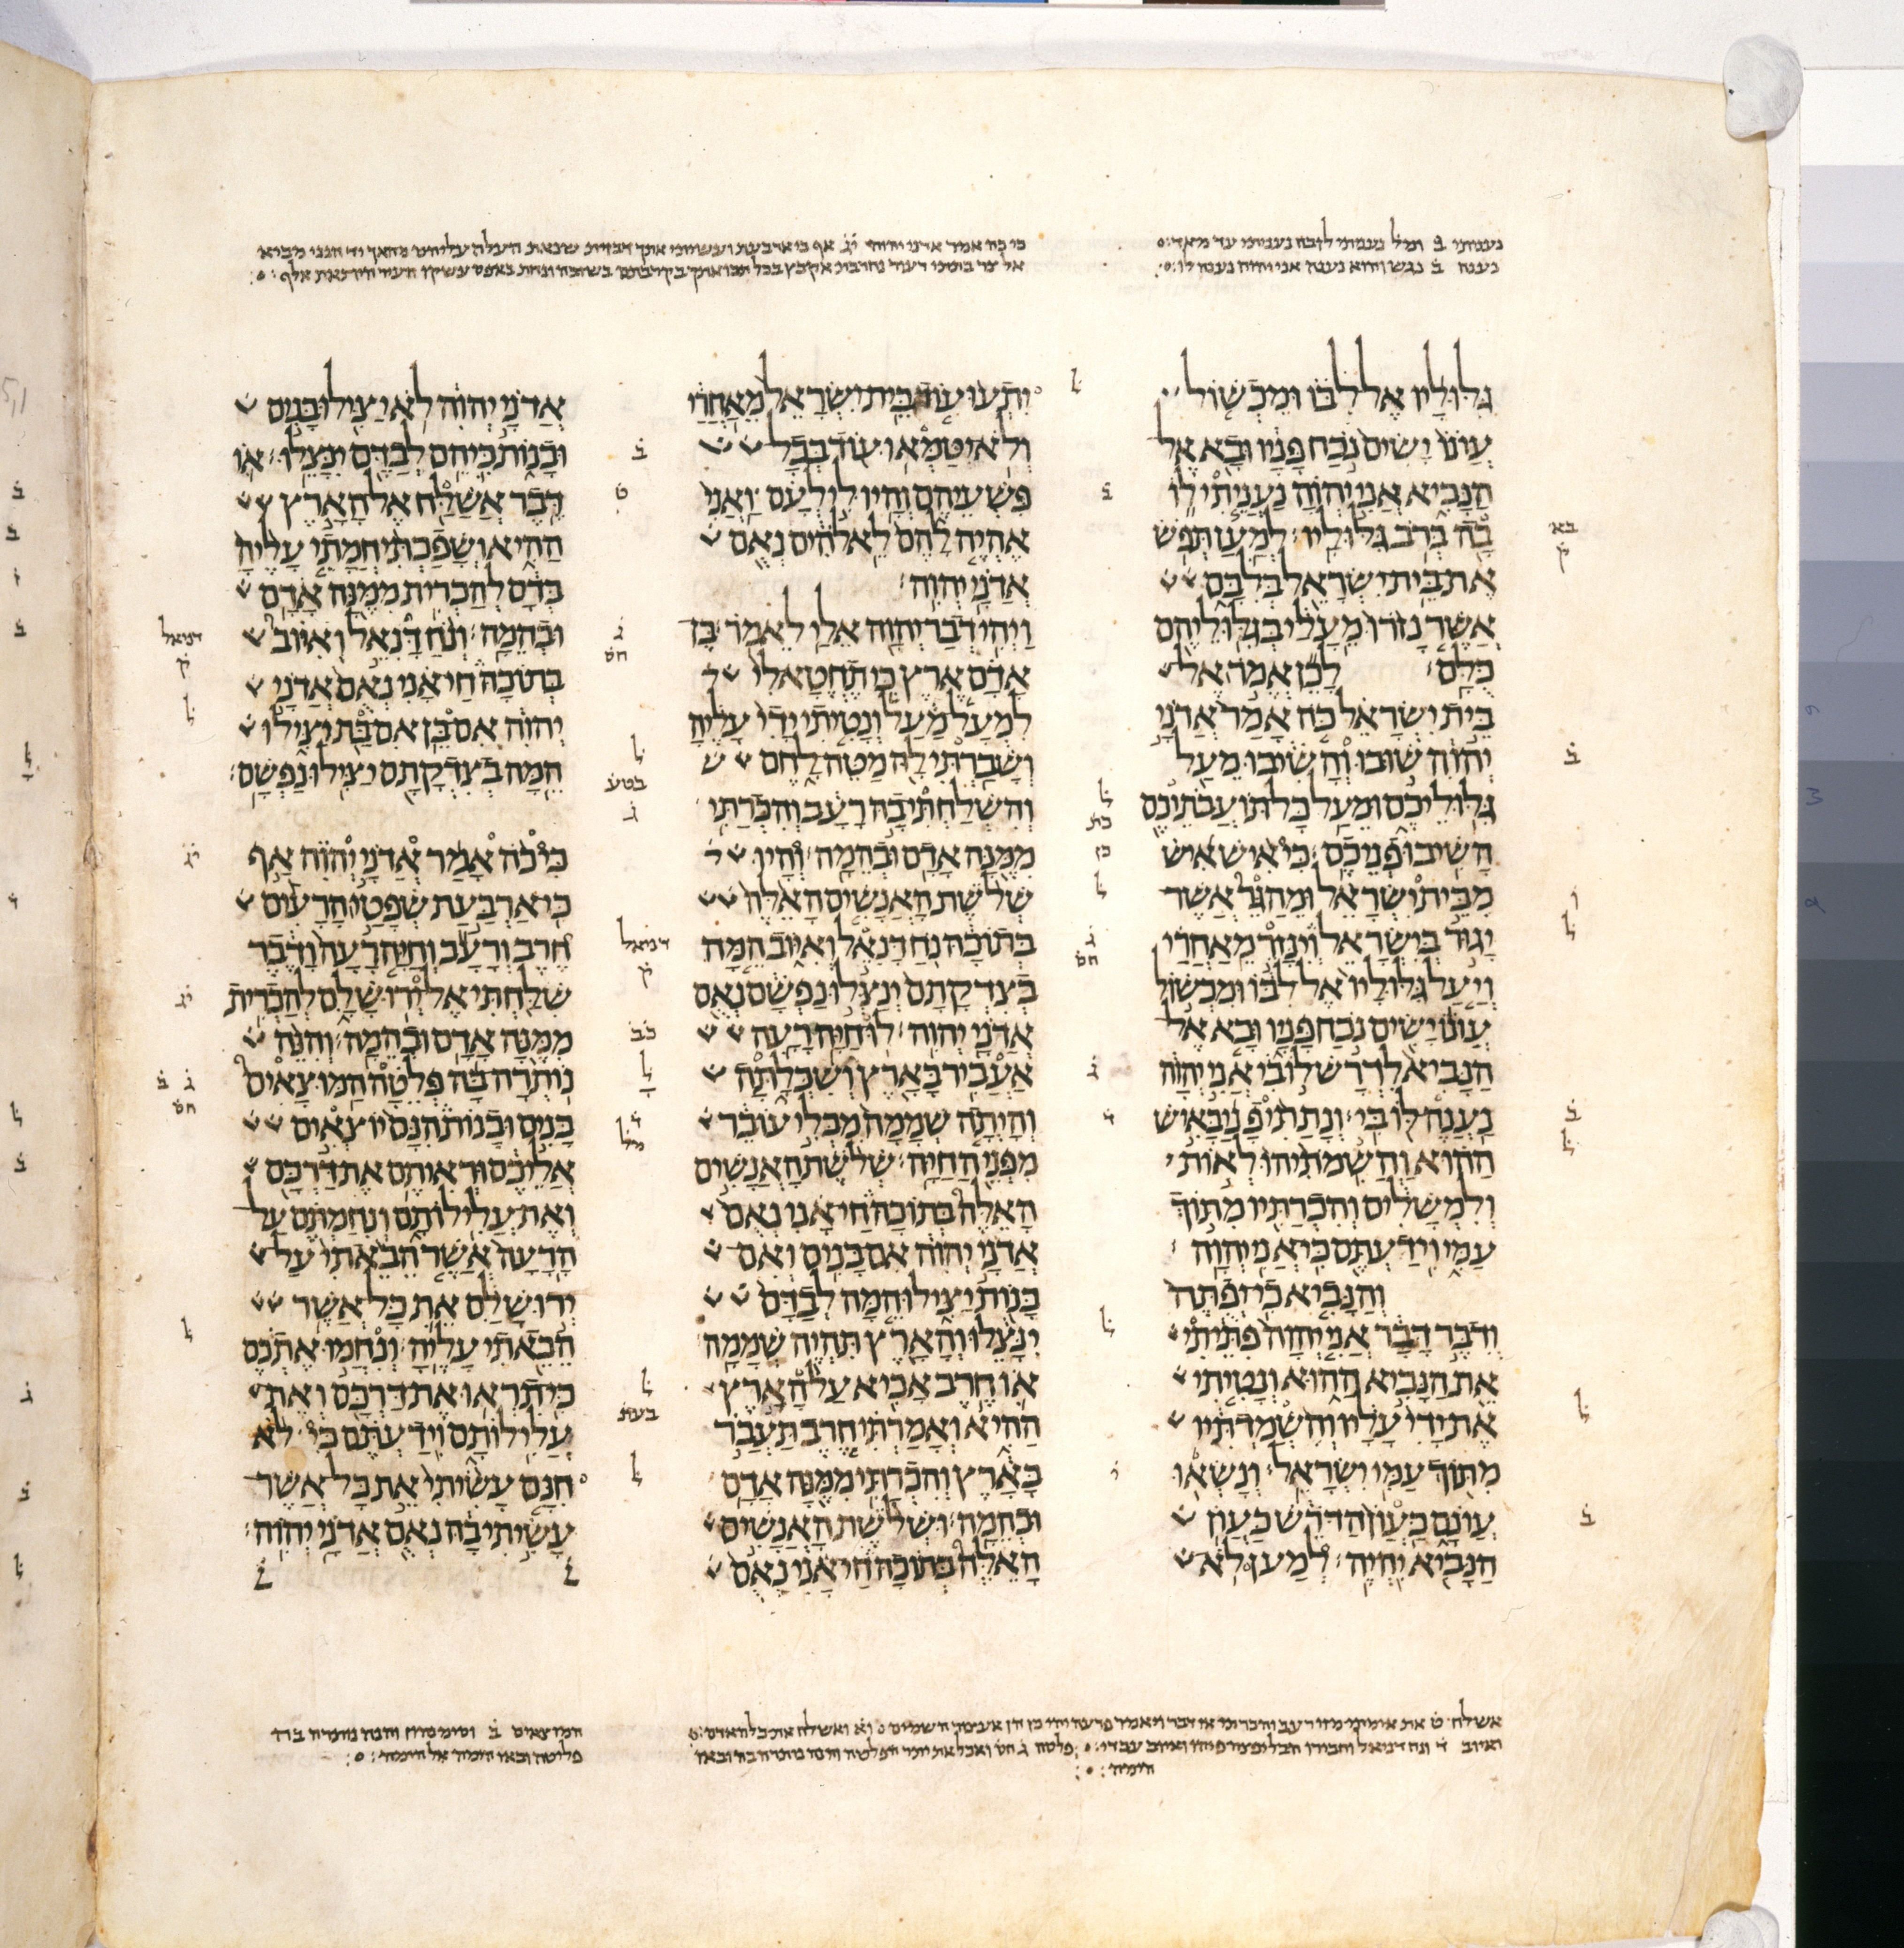 נעניתי ב ומל נעניתי לו בה נעניתי עד מאד
נענה ב נגש והוא נענה אני יהוה נענה לו
כי כה אמר אדני יהוה יג אף כי ארבעת
גלוליו אל לבו ומכשול
עונו ישים נכח פניו ובא אל
הנביא אני יהוה נעניתי לו
בה ברב גלוליו למען תפש
את בית ישראל בלבם
אשר נזרו מעלי בגלוליהם
כלם לכן אמר אל
בית ישראל כה אמר אדני
יהוה שובו והשיבו מעל
גלוליכם ומעל כל תועבתיכם
השיבו פניכם כי איש איש
מבית ישראל ומהגר אשר
יגור בישראל וינזר מאחרי
ויעל גלוליו אל לבו ומכשול
עונו ישים נכח פניו ובא אל
הנביא לדרש לו בי אני יהוה
נענה לו בי ונתתי פני באיש
ההוא והשמתיהו לאות
ולמשלים והכרתיו מתוך
עמי וידעתם כי אני יהוה
והנביא כי יפתה
ודבר דבר אני יהוה פתיתי
את הנביא ההוא ונטיתי
את ידי עליו והשמדתיו
מתוך עמי ישראל ונשאו
עונם כעון הדרש כעון
הנביא יהיה למען לא
יתעו עוד בית ישראל מאחרי
ולא יטמאו עוד בכל
פשעיהם והיו לי לעם ואני
אהיה להם לאלהים נאם
אדני יהוה
ויהי דבר יהוה אלי לאמר בן
אדם ארץ כי תחטא לי
למעל מעל ונטיתי ידי עליה
ושברתי לה מטה לחם
והשלחתי בה רעב והכרתי
ממנה אדם ובהמה והיו
שלשת האנשים האלה
בתוכה נח דנאל ואיוב המה
בצדקתם ינצלו נפשם נאם
אדני יהוה לו חיה רעה
אעביר בארץ ושכלתה
והיתה שממה מבלי עובר
מפני החיה שלשת האנשים
האלה בתוכה חי אני נאם
אדני יהוה אם בנים ואם
בנות יצילו המה לבדם
ינצלו והארץ תהיה שממה
או חרב אביא על הארץ
ההיא ואמרתי חרב תעבר
בארץ והכרתי ממנה אדם
ובהמה ושלשת האנשים
האלה בתוכה חי אני נאם
אדני יהוה לא יצילו בנים
ובנות כי הם לבדם ינצלו או
דבר אשלח אל הארץ
ההיא ושפכתי חמתי עליה
בדם להכרית ממנה אדם
ובהמה ונח דנאל ואיוב
בתוכה חי אני נאם אדני
יהוה אם בן אם בת יצילו
המה בצדקתם יצילו נפשם
כי כה אמר אדני יהוה אף
כי ארבעת שפטי הרעים
חרב ורעב וחיה רעה ודבר
שלחתי אל ירושלם להכרית
ממנה אדם ובהמה והנה
נותרה בה פלטה המוצאים
בנים ובנות הנם יוצאים
אליכם וראותם את דרכם
ואת עלילותם ונחמתם על
הרעה אשר הבאתי על
ירושלם את כל אשר
הבאתי עליה ונחמו אתכם
כי תראו את דרכם ואת
עלילותם וידעתם כי לא
חנם עשיתי את כל אשר
עשיתי בה נאם אדני יהוה
ואיוב ד נח דניאל
המוצאים ב